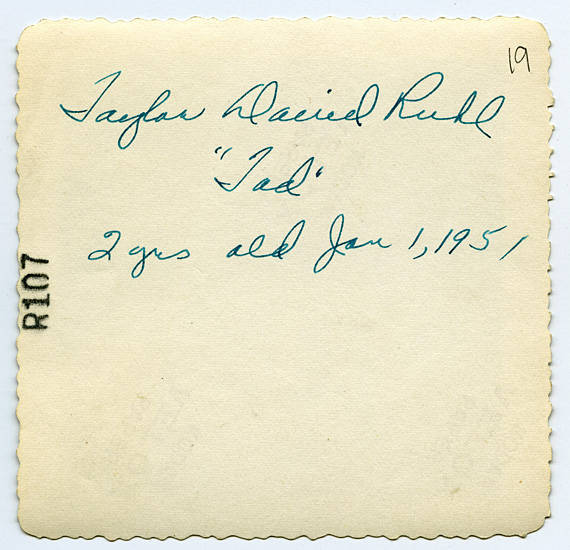 19
Taylor David Ruhl
"Tad"
2 yrs old Jan 1, 1951
R107